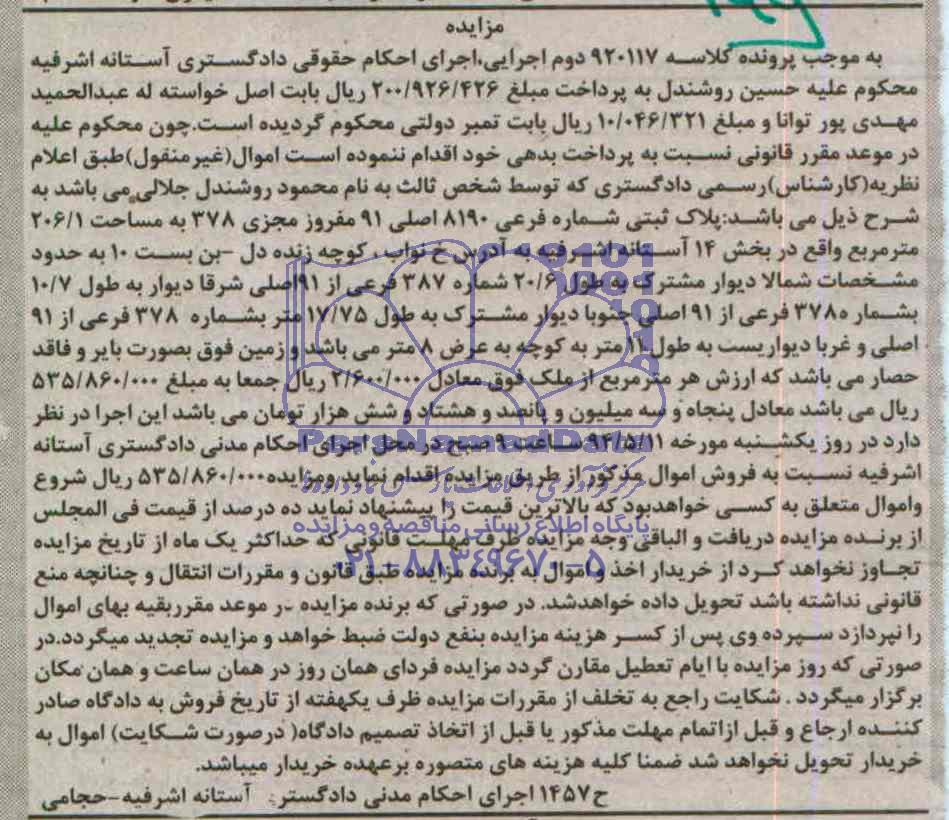 مزایده
به موجب پرونده کلاسه ۹۲۰۱۱۷ دوم اجرایی،اجرای احکام حقوقی دادگستری آستانه اشرفیه
محکوم علیه حسین روشندل به پرداخت مبلغ ۲۰۰/۹۲۶/۴۲۶ ریال بابت اصل خواسته له عبدالحمید
مهدی پور توانا و مبلغ ۱۰/۰۴۶/۳۲۱ ریال بابت تمبر دولتی محکوم گردیده است.چون محکوم علیه
در موعد مقرر قانونی نسبت به پرداخت بدهی خود اقدام ننموده است اموال(غیرمنقول)طبق اعلام
نظریه(کارشناس)رسمی دادگستری که توسط شخص ثالث به نام محمود روشندل جلالی می باشد به
شرح ذیل می باشد:پلاک ثبتی شماره فرعی ۸۱۹۰ اصلی ۹۱ مفروز مجزی ۳۷۸ به مساحت ۲۰۶/۱
مترمربع واقع در بخش ۱۴ آستانه اشرفیه به آدرس خ نواب ، کوچه زنده دل -بن بست ۱۰ به حدود
مشخصات شمالا دیوار مشترک به طول ۲۰/۶ شماره ۳۸۷ فرعی از ۹۱اصلی شرقا دیوار به طول ۱۰/۷
بشمار ه۳۷۸ فرعی از ۹۱ اصلی جنوبا دیوار مشترک به طول ۱۷/۷۵ متر بشماره ۳۷۸ فرعی از ۹۱
اصلی و غربا دیواریست به طول ۱۱ متر به کوچه به عرض ۸ متر می باشد و زمین فوق بصورت بایر و فاقد
حصار می باشد که ارزش هر مترمربع از ملک فوق معادل ۲/۶۰۰/۰۰۰ ریال جمعا به مبلغ ۵۳۵/۸۶۰/۰۰۰
ریال می باشد معادل پنجاه و سه میلیون و پانصد و هشتاد و شش هزار تومان می باشد این اجرا در نظر
دارد در روز یکشنبه مورخه ۹۴/۵/۱۱ ساعت ۹ صبح در محل اجرای احکام مدنی دادگستری آستانه
اشرفیه نسبت به فروش اموال مذکور از طریق مزایده اقدام نماید ومزایده۵۳۵/۸۶۰/۰۰۰ ریال شروع
واموال متعلق به کسی خواهدبود که بالاترین قیمت را پیشنهاد نماید ده درصد از قیمت فی المجلس
از برنده مزایده دریافت و الباقی وجه مزایده ظرف مهلت قانونی که حداکثر یک ماه از تاریخ مزایده
تجاوز نخواهد کرد از خریدار اخذ و اموال به برنده مزایده طبق قانون و مقررات انتقال و چنانچه منع
قانونی نداشته باشد تحویل داده خواهدشد. در صورتی که برنده مزایده در موعد مقرربقیه بهای اموال
را نپردازد سپرده وی پس از کسر هزینه مزایده بنفع دولت ضبط خواهد و مزایده تجدید میگردد.در
صورتی که روز مزایده با ایام تعطیل مقارن گردد مزایده فردای همان روز در همان ساعت و همان مکان
برگزار میگردد . شکایت راجع به تخلف از مقررات مزایده ظرف یکهفته از تاریخ فروش به دادگاه صادر
کننده ارجاع و قبل ازاتمام مهلت مذکور یا قبل از اتخاذ تصمیم دادگاه( درصورت شکایت) اموال به
خریدار تحویل نخواهد شد ضمنا کلیه هزینه های متصوره برعهده خریدار میباشد.
ح۱۴۵۷ اجرای احکام مدنی دادگستری آستانه اشرفیه-حجامی
ParsNamadData
پایگاه اطلاع رسانی مناقصه و مزایده
۰۲۱-۸۸۳۴۹۶۷۰-۵